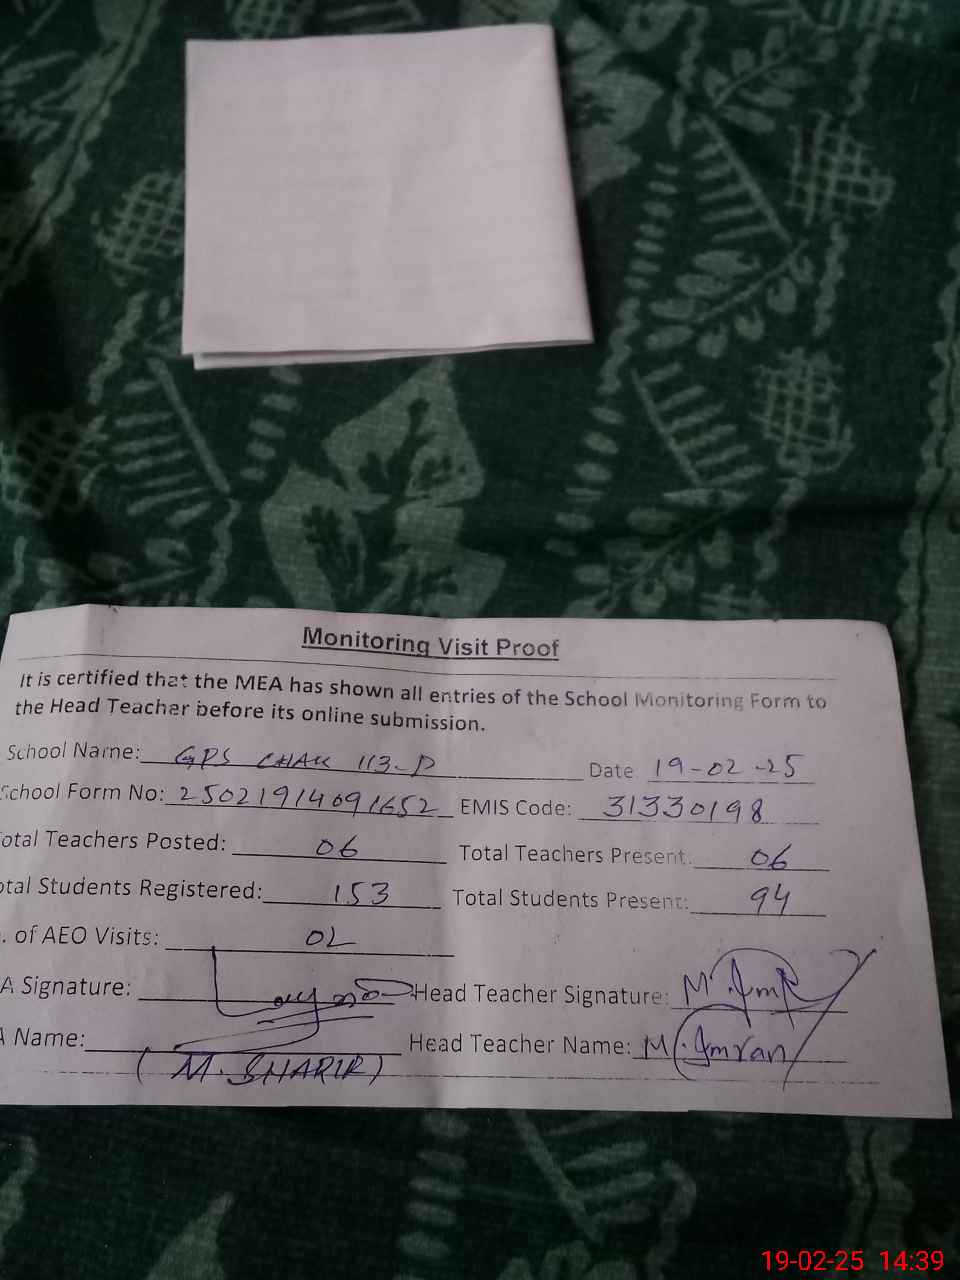 Monitoring Visit Proof
It is certified that the MEA has shown all entries of the School Monitoring Form to
the Head Teacher before its online submission.
School Name: GPS CHAK 113-D Date 19-02-25
School Form No: 25021914091652 EMIS Code: 31330198
otal Teachers Posted: 06 Total Teachers Present: 06
otal Students Registered: 153 Total Students Present: 94
. of AEO Visits: 02
A Signature: Head Teacher Signature: M. Imr
A Name: (M. SHARIR) Head Teacher Name: M. Imran
19-02-25 14:39